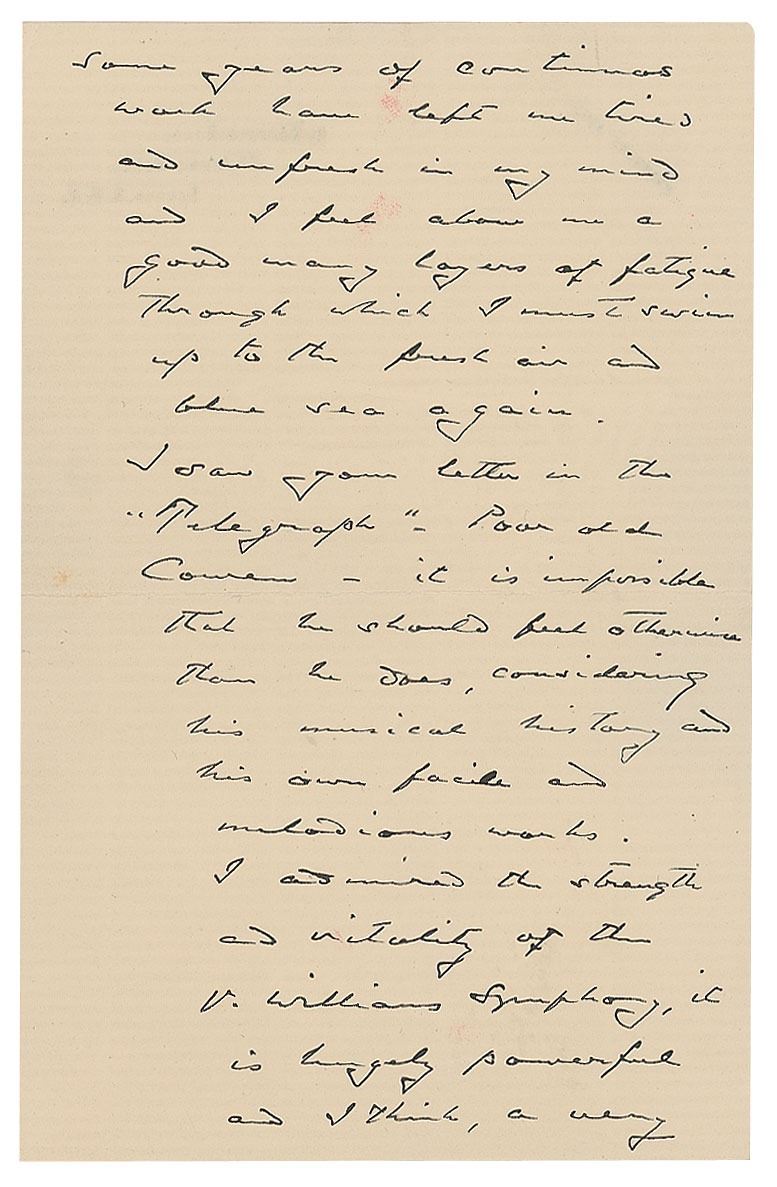 Some years of continuos
work have left me tired
and unfresh in my mind
and I feel above me a
good many layers of fatigue
through which I must swim
up to the fresh air and
blue sea again.
I saw your letter in the
"Telegraph" - Poor old
Cowen - it is impossible
that he should feel otherwise
than he does, considering
his musical history and
his own facile and
melodious works.
I admired the strength
and vitality of the
V. Williams Symphony, it
is hugely powerful
and I think, a very